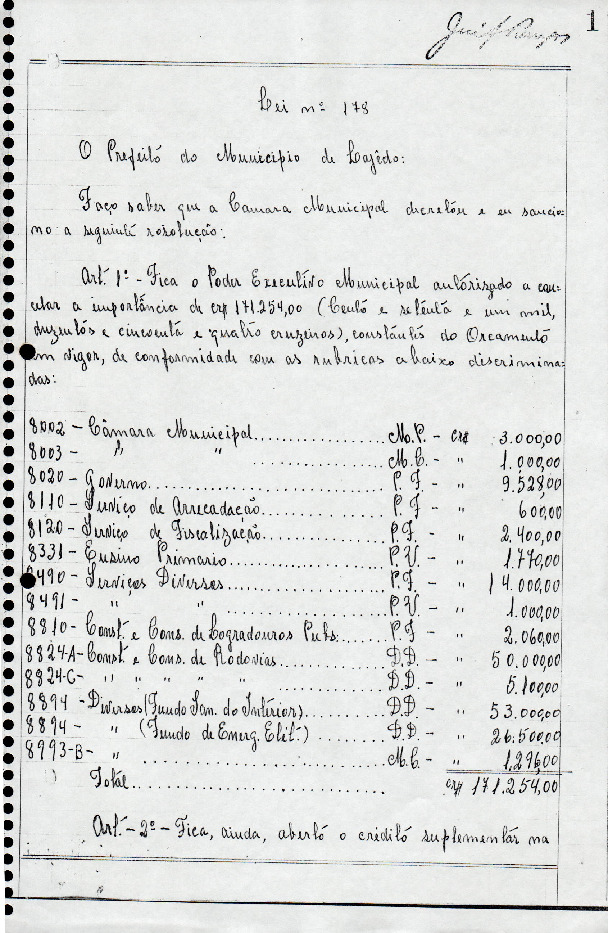 1
Lei nº 178
O Prefeito do Municipio de Lajêdo:
Faço saber que a Câmara Municipal decretou e eu sancio-
no a seguinte resolução:
Art. 1º - Fica o Poder Executivo Municipal autorizado a can-
celar a importância de cr$ 171.254,00 (Cento e setenta e um mil,
duzentos e cincoenta e quatro cruzeiros), constantes do Orcamento
em vigor, de conformidade com as rubricas abaixo discrimina-
das:
8002 - Câmara Municipal.................. M.P. - cr$ 3.000,00
8003 - " " .................. M.C. - " 1.000,00
8020 - Governo.................. P.F. - " 9.528,00
8110 - Serviço de Arrecadação.................. P.F. - " 600,00
8120 - Serviço de Fiscalização.................. P.F. - " 2.400,00
8331 - Ensino Primario.................. P.V. - " 1.770,00
8490 - Serviços Diversos.................. P.F. - " 14.000,00
8491 - " " .................. P.V. - " 1.000,00
8810 - Const. e Cons. de Logradouros Pubs:...... P.F - " 2.060,00
8824-A- Const. e Cons. de Rodovias.................. D.D. - " 50.000,00
8824-C- " " " " " .................. D.D. - " 5.100,00
8894 - Diversos (Fundo San. do Intérior)............ D.D. - " 53.000,00
8894 - " (Fundo de Energ. Elét.)............ D.D. - " 26.500,00
8993-B- " .................. M.C. - " 1.296,00
Total.................. cr$ 171.254,00
Art. - 2º - Fica, ainda, aberto o crédito suplementar na